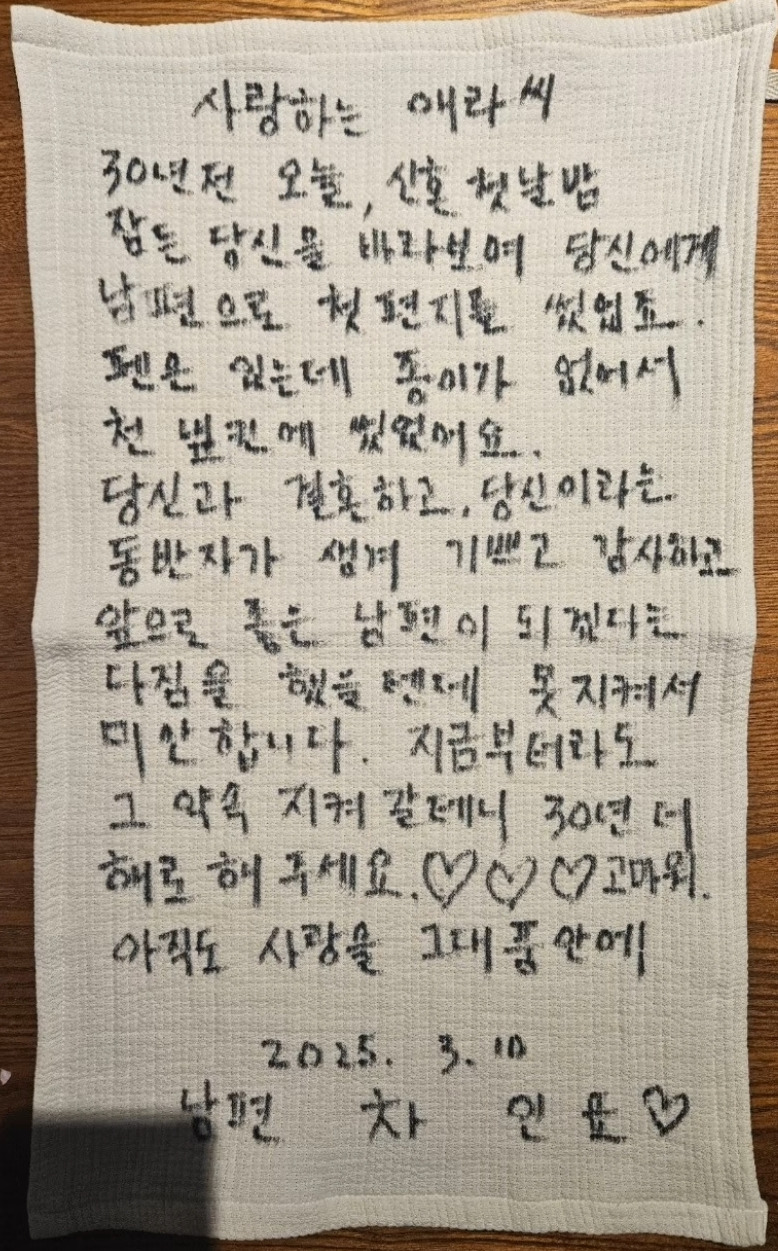 사랑하는 애라씨
30년전 오늘, 신혼 첫날밤
잠든 당신을 바라보며 당신에게
남편으로 첫 편지를 썼었죠.
펜은 있는데 종이가 없어서
천 냅킨에 썼었어요.
당신과 결혼하고, 당신이라는
동반자가 생겨 기쁘고 감사하고
앞으로 좋은 남편이 되겠다는
다짐을 했을텐데 못 지켜서
미안합니다. 지금부터라도
그 약속 지켜 갈테니 30년 더
해로 해 주세요. ♡♡♡ 고마워.
아직도 사랑을 그대 품 안에
2025. 3. 10
남편 차 인 표 ♡